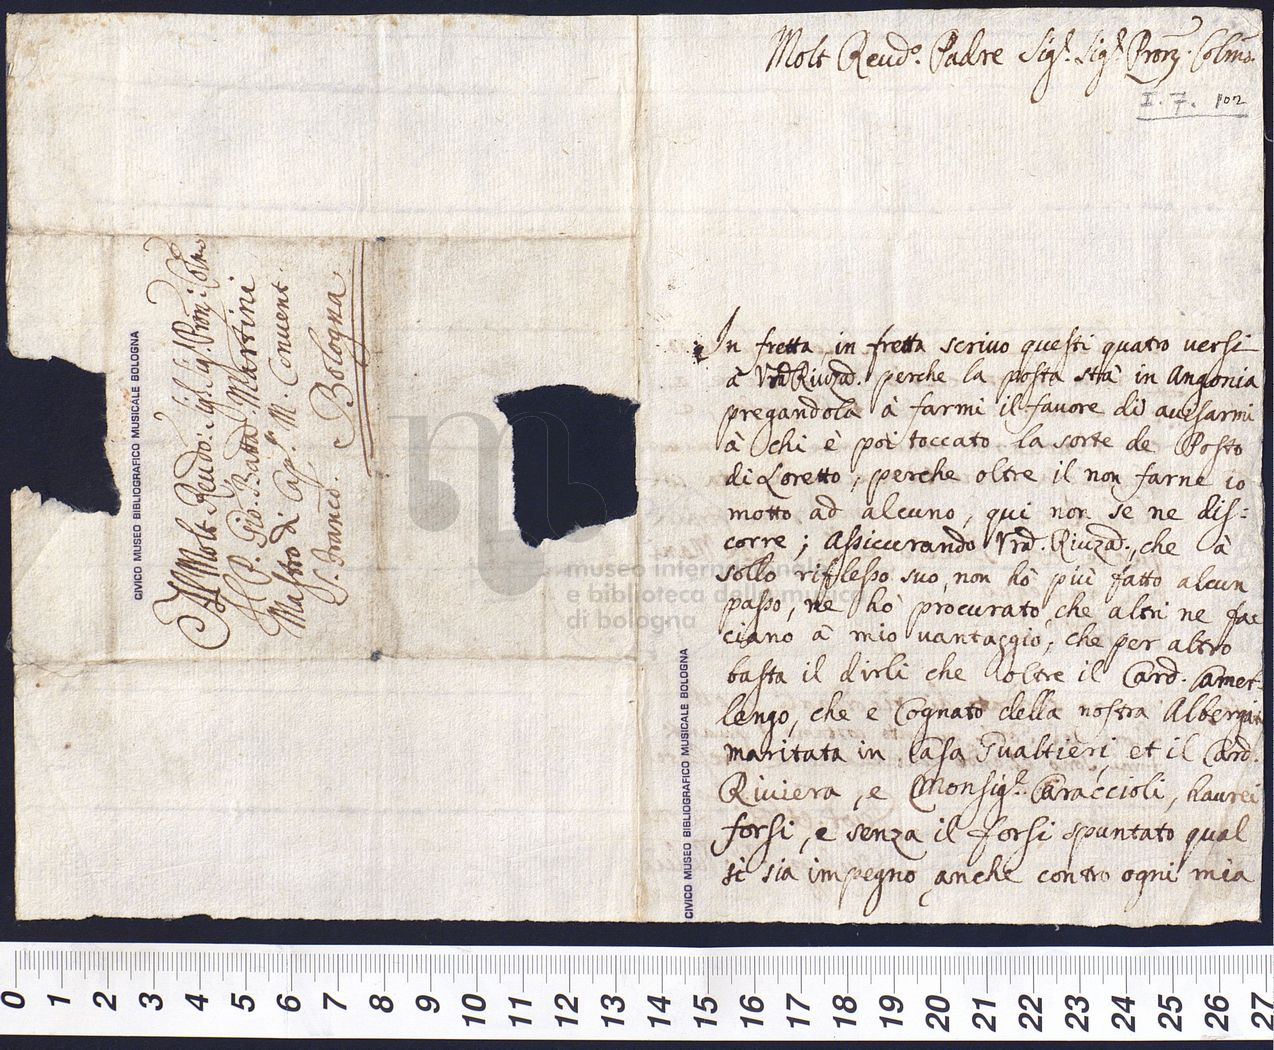 Molt Reud.º Padre Sig.r Sig.r Pron: Colmo.
I. 7. 102
In fretta in fretta scrivo questi quatro versi
à Vrã Riuzad. perche la posta stà in Angonia
pregandola à farmi il fauore di auisarmi
à chi è poi toccato la sorte de Posto
di Loretto, perche oltre il non farne io
motto ad alcuno, qui non se ne dis=
corre; Assicurando Vrã. Riuzad., che à
sollo riflesso suo, non hò più fatto alcun
passo, ne hò procurato, che altri ne fac
ciano à mio uantaggio, che per altro
basta il dirli che oltre il Card. Camer-
lengo, che e Cognato della nostra Albergati
maritata in Casa Gualtieri, et il Card.
Riuiera, e Monsig.r Caraccioli, haurei
forsi, e senza il forsi spuntato qual
si sia impegno anche contro ogni mia
Al Molt Reudo: Sig.r Sig.r Pron: Colmo
Il P. Gio: Batta Martini
Mastro di Cap.la M. Conuent.
S. Franco.
Bologna
CIVICO MUSEO BIBLIOGRAFICO MUSICALE BOLOGNA
CIVICO MUSEO BIBLIOGRAFICO MUSICALE BOLOGNA
museo internazionale
e biblioteca della musica
di bologna
0 1 2 3 4 5 6 7 8 9 10 11 12 13 14 15 16 17 18 19 20 21 22 23 24 25 26 27